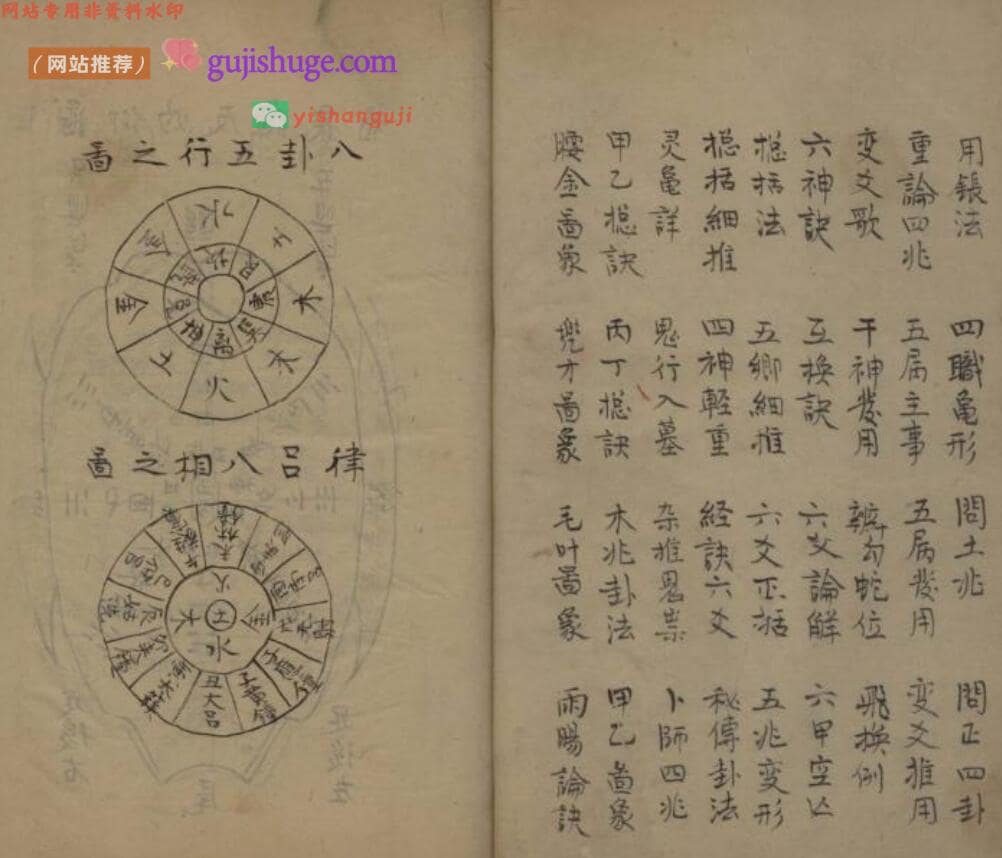 网站专用非资料水印
（网站推荐） gujishuge.com
yishanguji
用鋹法 四職亀形 問土兆 問正四卦
重論四兆 五屬主事 五屬發用 变爻推用
变爻歌 干神發用 辨勾蛇位 飛换例
六神訣 互换訣 六爻論解 六甲空亾
揔括法 五鄉細推 六爻正括 五兆变形
揔括細推 四神輕重 経訣六爻 秘傳卦法
灵亀詳 鬼行入墓 杂推鬼祟 卜師四兆
甲乙揔訣 丙丁揔訣 木兆卦法 甲乙啚象
腰金啚象 兠才啚象 毛叶啚象 雨暘論訣
八卦五行之啚
水 木 木 火 土 金 金
坎 艮 震 巽 離 坤
律呂八相之啚
火 金 水 木 土
未林鐘
丑大呂
子黃鐘